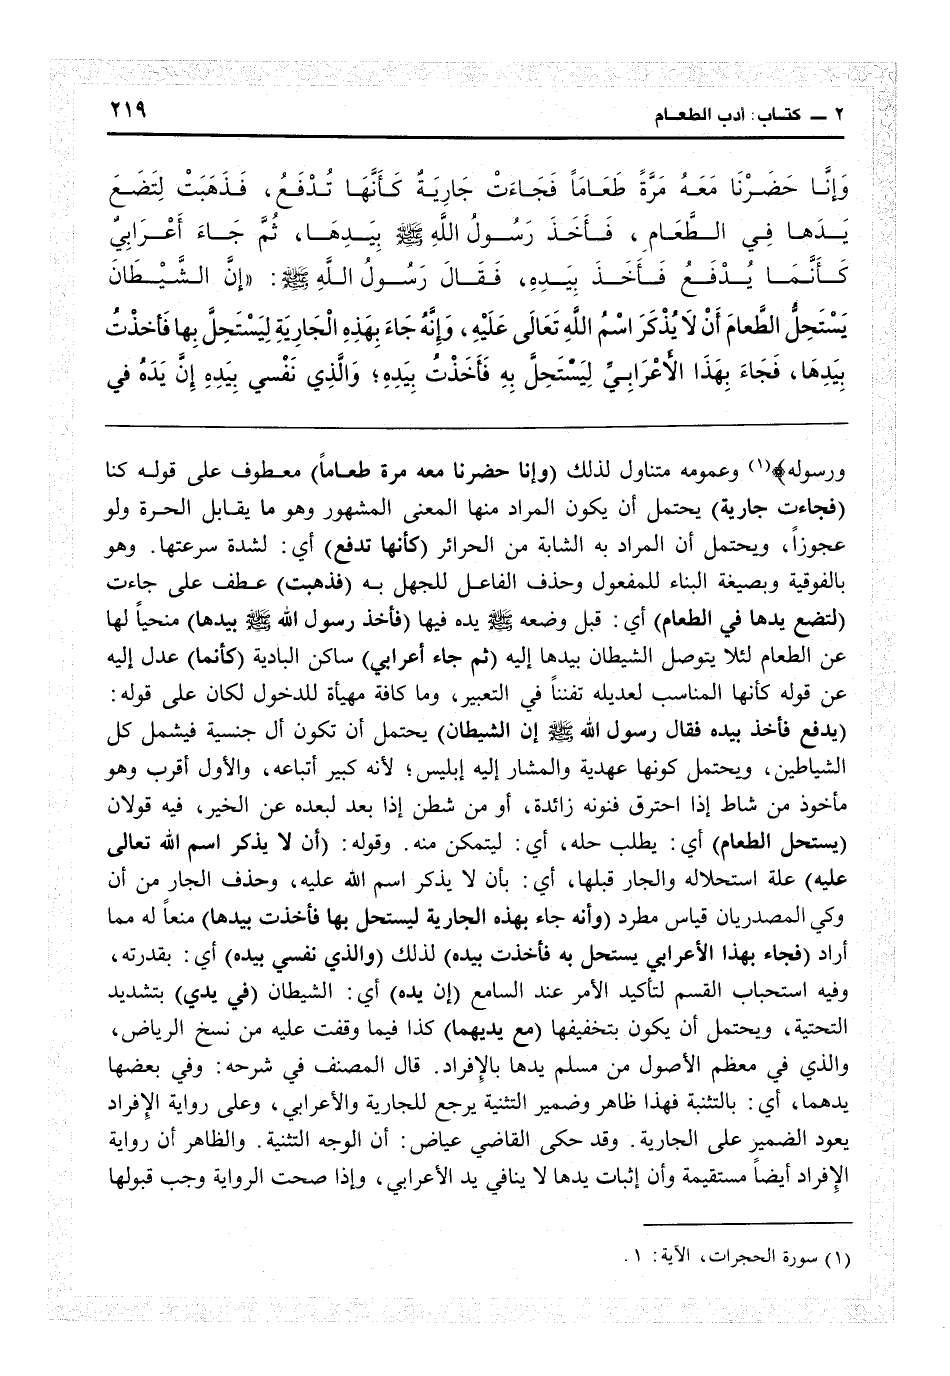 ٢ ــ كتـاب: أدب الطعـام
٢١٩
وَإِنَّـا حَضَـرْنَـا مَعَـهُ مَرَّةً طَعَـامَاً فَجَـاءَتْ جَارِيَـةٌ كَـأَنَّهَـا تُـدْفَـعُ، فَـذَهَبَتْ لِتَضَـعَ
يَـدَهَـا فِـي الـطَّعَـامِ، فَـأَخَـذَ رَسُـولُ اللَّهِ ﷺ بِيَـدِهَـا، ثُمَّ جَـاءَ أَعْـرَابِيٌّ
كَـأَنَّمَـا يُـدْفَـعُ فَـأَخَـذَ بِيَـدِهِ، فَـقَـالَ رَسُـولُ الـلَّهِ ﷺ: «إِنَّ الـشَّيْـطَانَ
يَسْتَحِلُّ الطَّعَامَ أَنْ لَا يُذْكَرَ اسْمُ اللَّهِ تَعَالَى عَلَيْهِ، وَإِنَّهُ جَاءَ بِهَذِهِ الْجَارِيَةِ لِيَسْتَحِلَّ بِها فَأخذْتُ
بِيَدِهَا، فَجَاءَ بِهَذَا الأَعْرَابِـيِّ لِيَسْتَحِلَّ بِهِ فَأَخَذْتُ بِيَدِهِ؛ وَالَّذِي نَفْسي بِيَدِهِ إِنَّ يَدَهُ في
ورسوله﴾(١) وعمومه متناول لذلك (وإنا حضرنا معه مرة طعـاماً) معـطوف على قولـه كنا
(فجاءت جارية) يحتمل أن يكون المراد منها المعنى المشهور وهو ما يقـابل الحـرة ولو
عجوزاً، ويحتمل أن المراد به الشابة من الحرائر (كأنها تدفع) أي: لشدة سرعتها. وهو
بالفوقية وبصيغة البناء للمفعول وحذف الفاعـل للجهل بـه (فذهبت) عـطف على جاءت
(لتضع يدها في الطعام) أي: قبل وضعه ﷺ يده فيها (فأخذ رسول الله ﷺ بيدها) منحياً لها
عن الطعام لئلا يتوصل الشيطان بيدها إليه (ثم جاء أعرابي) ساكن البادية (كأنما) عدل إليه
عن قوله كأنها المناسب لعديله تفنناً في التعبير، وما كافة مهيأة للدخول لكان على قوله:
(يدفع فأخذ بيده فقال رسول الله ﷺ إن الشيطان) يحتمل أن تكون أل جنسية فيشمل كل
الشياطين، ويحتمل كونها عهدية والمشار إليه إبليس؛ لأنه كبير أتباعه، والأول أقرب وهو
مأخوذ من شاط إذا احترق فنونه زائدة، أو من شطن إذا بعد لبعده عن الخير، فيه قولان
(يستحل الطعام) أي: يطلب حله، أي: ليتمكن منه. وقوله: (أن لا يذكر اسم الله تعالى
عليه) علة استحلاله والجار قبلها، أي: بأن لا يذكر اسم الله عليه، وحذف الجار من أن
وكي المصدريان قياس مطرد (وأنه جاء بهذه الجارية ليستحل بها فأخذت بيدها) منعاً له مما
أراد (فجاء بهذا الأعرابي يستحل به فأخذت بيده) لذلك (والذي نفسي بيده) أي: بقدرته،
وفيه استحباب القسم لتأكيد الأمر عند السامع (إن يده) أي: الشيطان (في يدي) بتشديد
التحتية، ويحتمل أن يكون بتخفيفها (مع يديهما) كذا فيما وقفت عليه من نسخ الرياض،
والذي في معظم الأصول من مسلم يدها بالإفراد. قال المصنف في شرحه: وفي بعضها
يدهما، أي: بالتثنية فهذا ظاهر وضمير التثنية يرجع للجارية والأعرابي، وعلى رواية الإفراد
يعود الضمير على الجارية. وقد حكى القاضي عياض: أن الوجه التثنية. والظاهر أن رواية
الإفراد أيضاً مستقيمة وأن إثبات يدها لا ينافي يد الأعرابي، وإذا صحت الرواية وجب قبولها
(١) سورة الحجرات، الآية: ١.